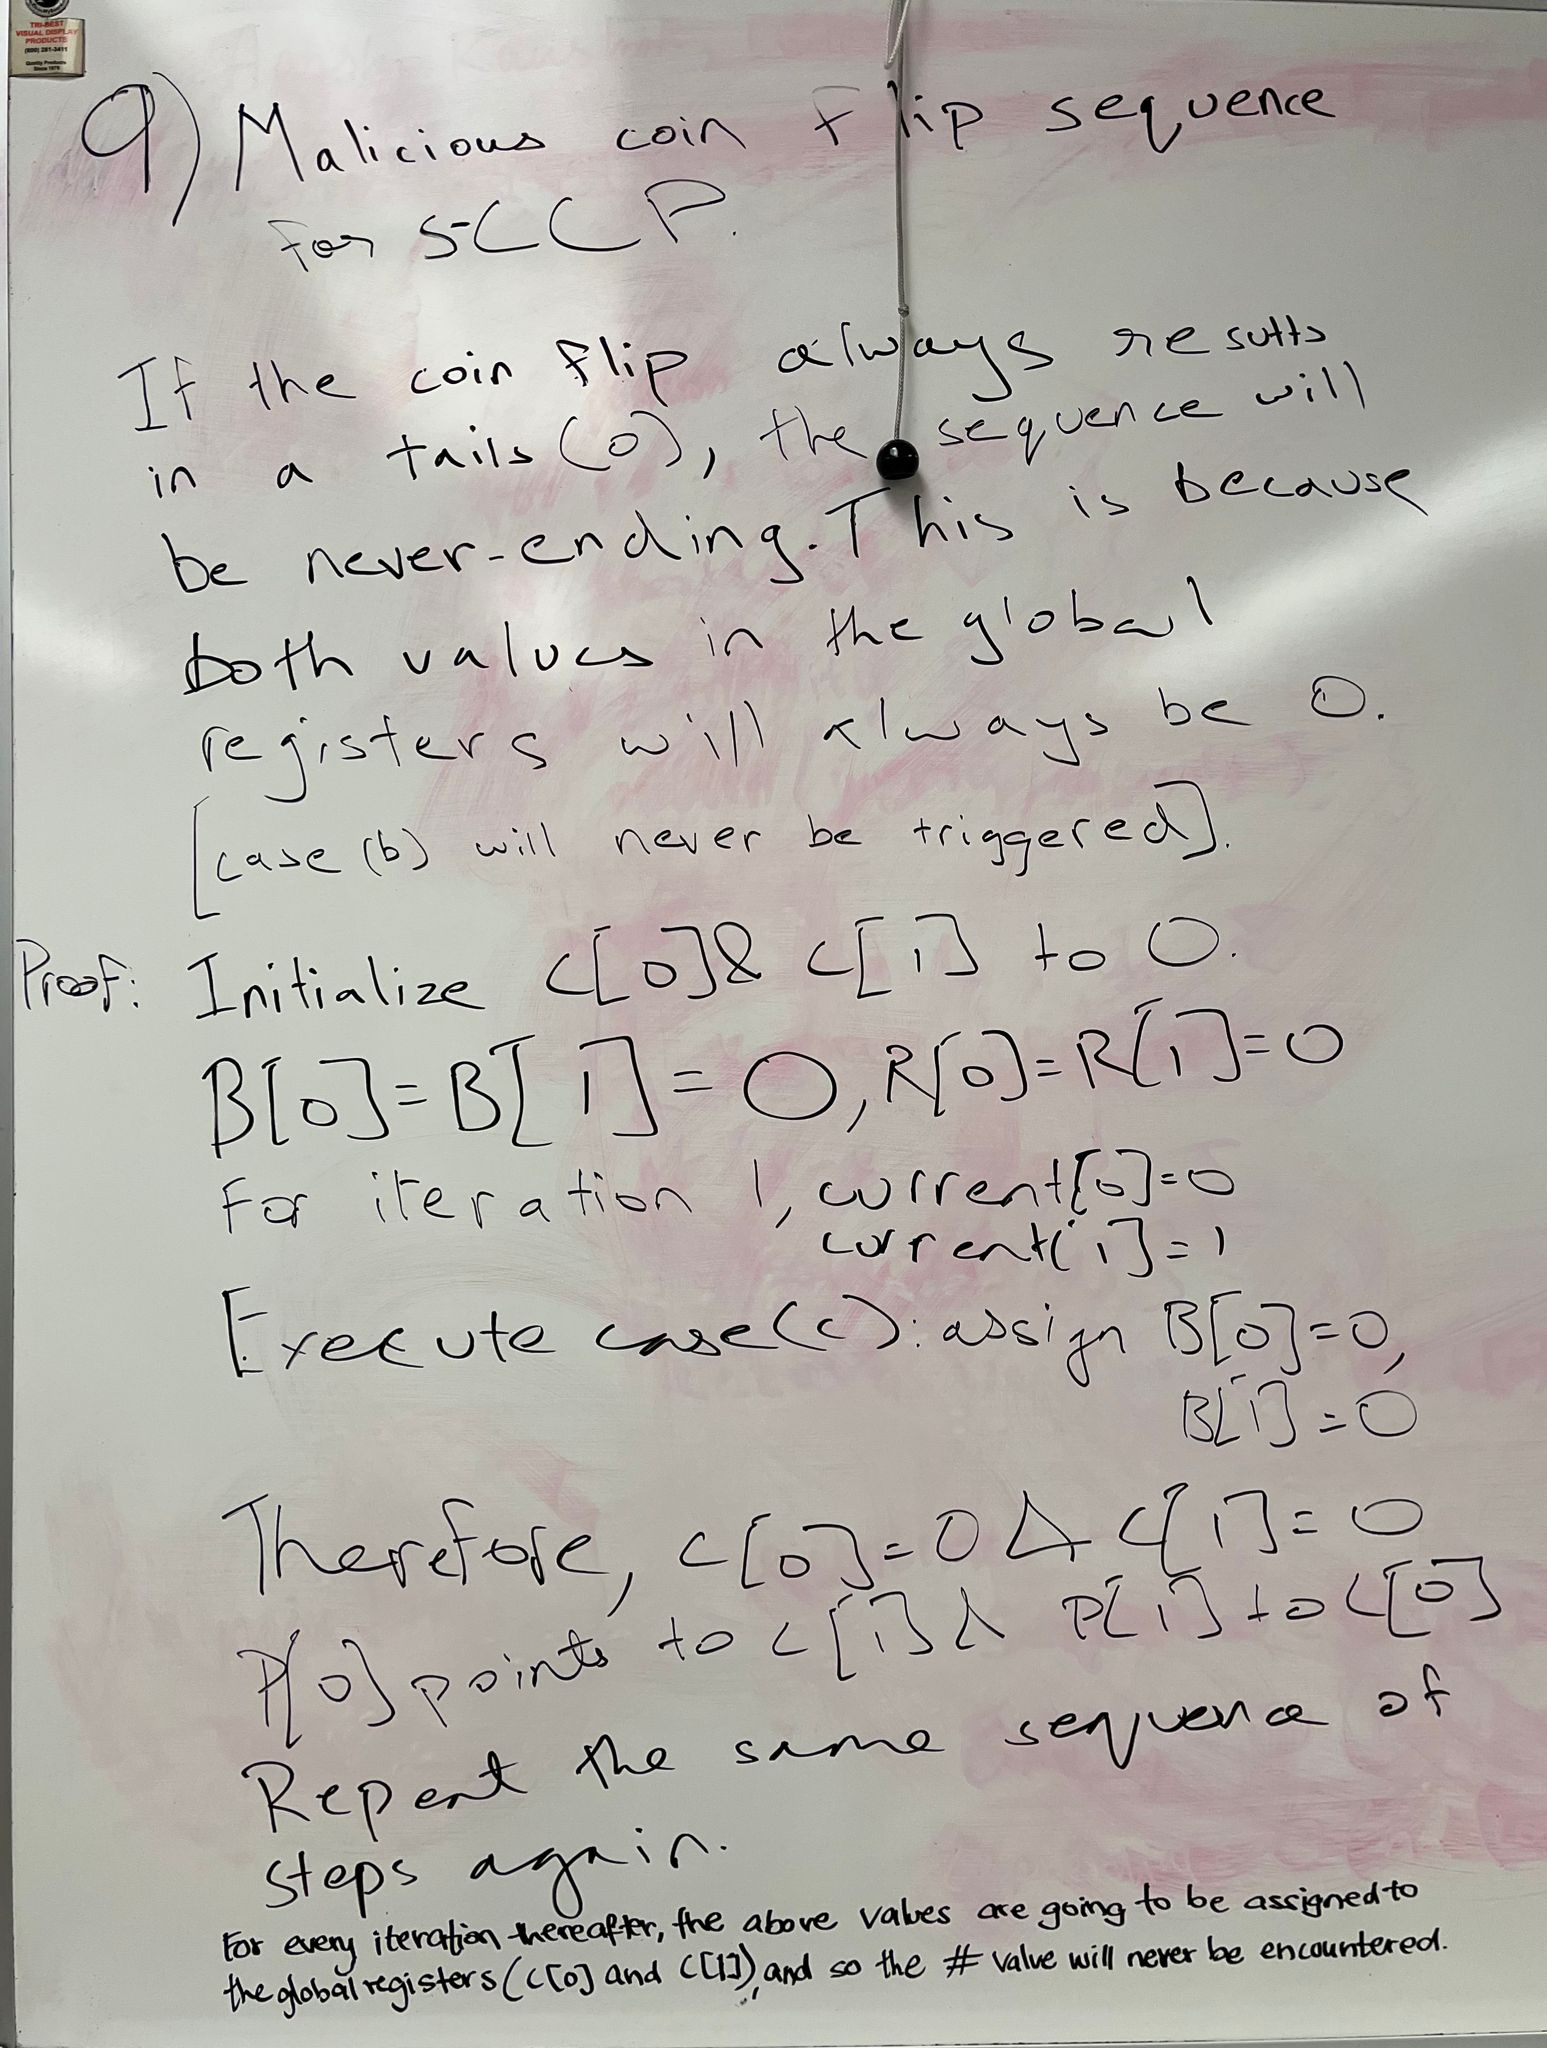 TRI-BEST
VISUAL DISPLAY
PRODUCTS
(800) 281-3411
Quality Products
Since 1975
9) Malicious coin flip sequence
for SCCP.
If the coin flip always results
in a tails (0), the sequence will
be never-ending. This is because
both values in the global
registers will always be 0.
[case (b) will never be triggered].
Proof: Initialize C[0] & C[1] to 0.
B[0]=B[1]=0, R[0]=R[1]=0
For iteration 1, current[0]=0
current[1]=1
Execute case(c): assign B[0]=0,
B[1]=0
Therefore, C[0]=0 & C[1]=0
P[0] points to C[1] & P[1] to C[0]
Repeat the same sequence of
steps again.
For every iteration thereafter, the above values are going to be assigned to
the global registers (C[0] and C[1]), and so the # value will never be encountered.